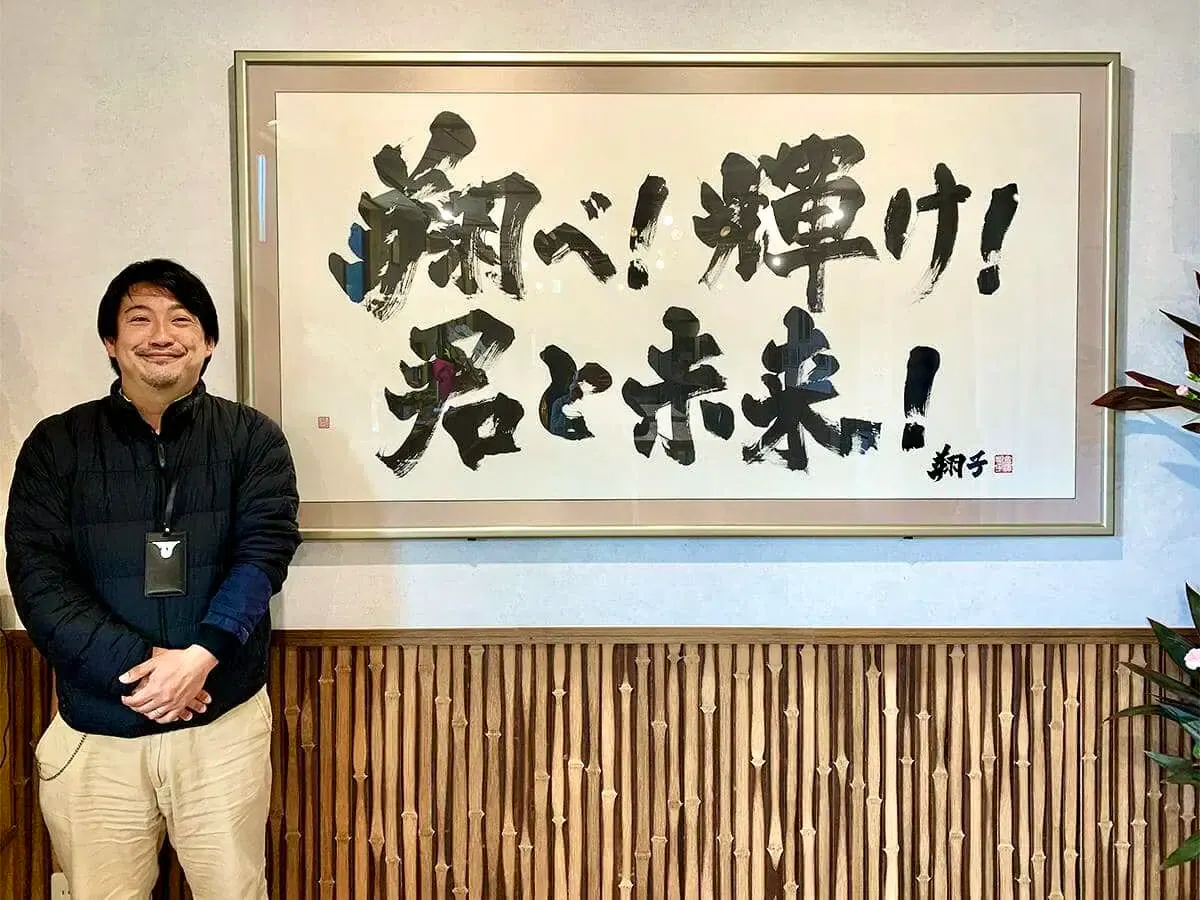 翔べ!輝け!
君と未来!
翔子